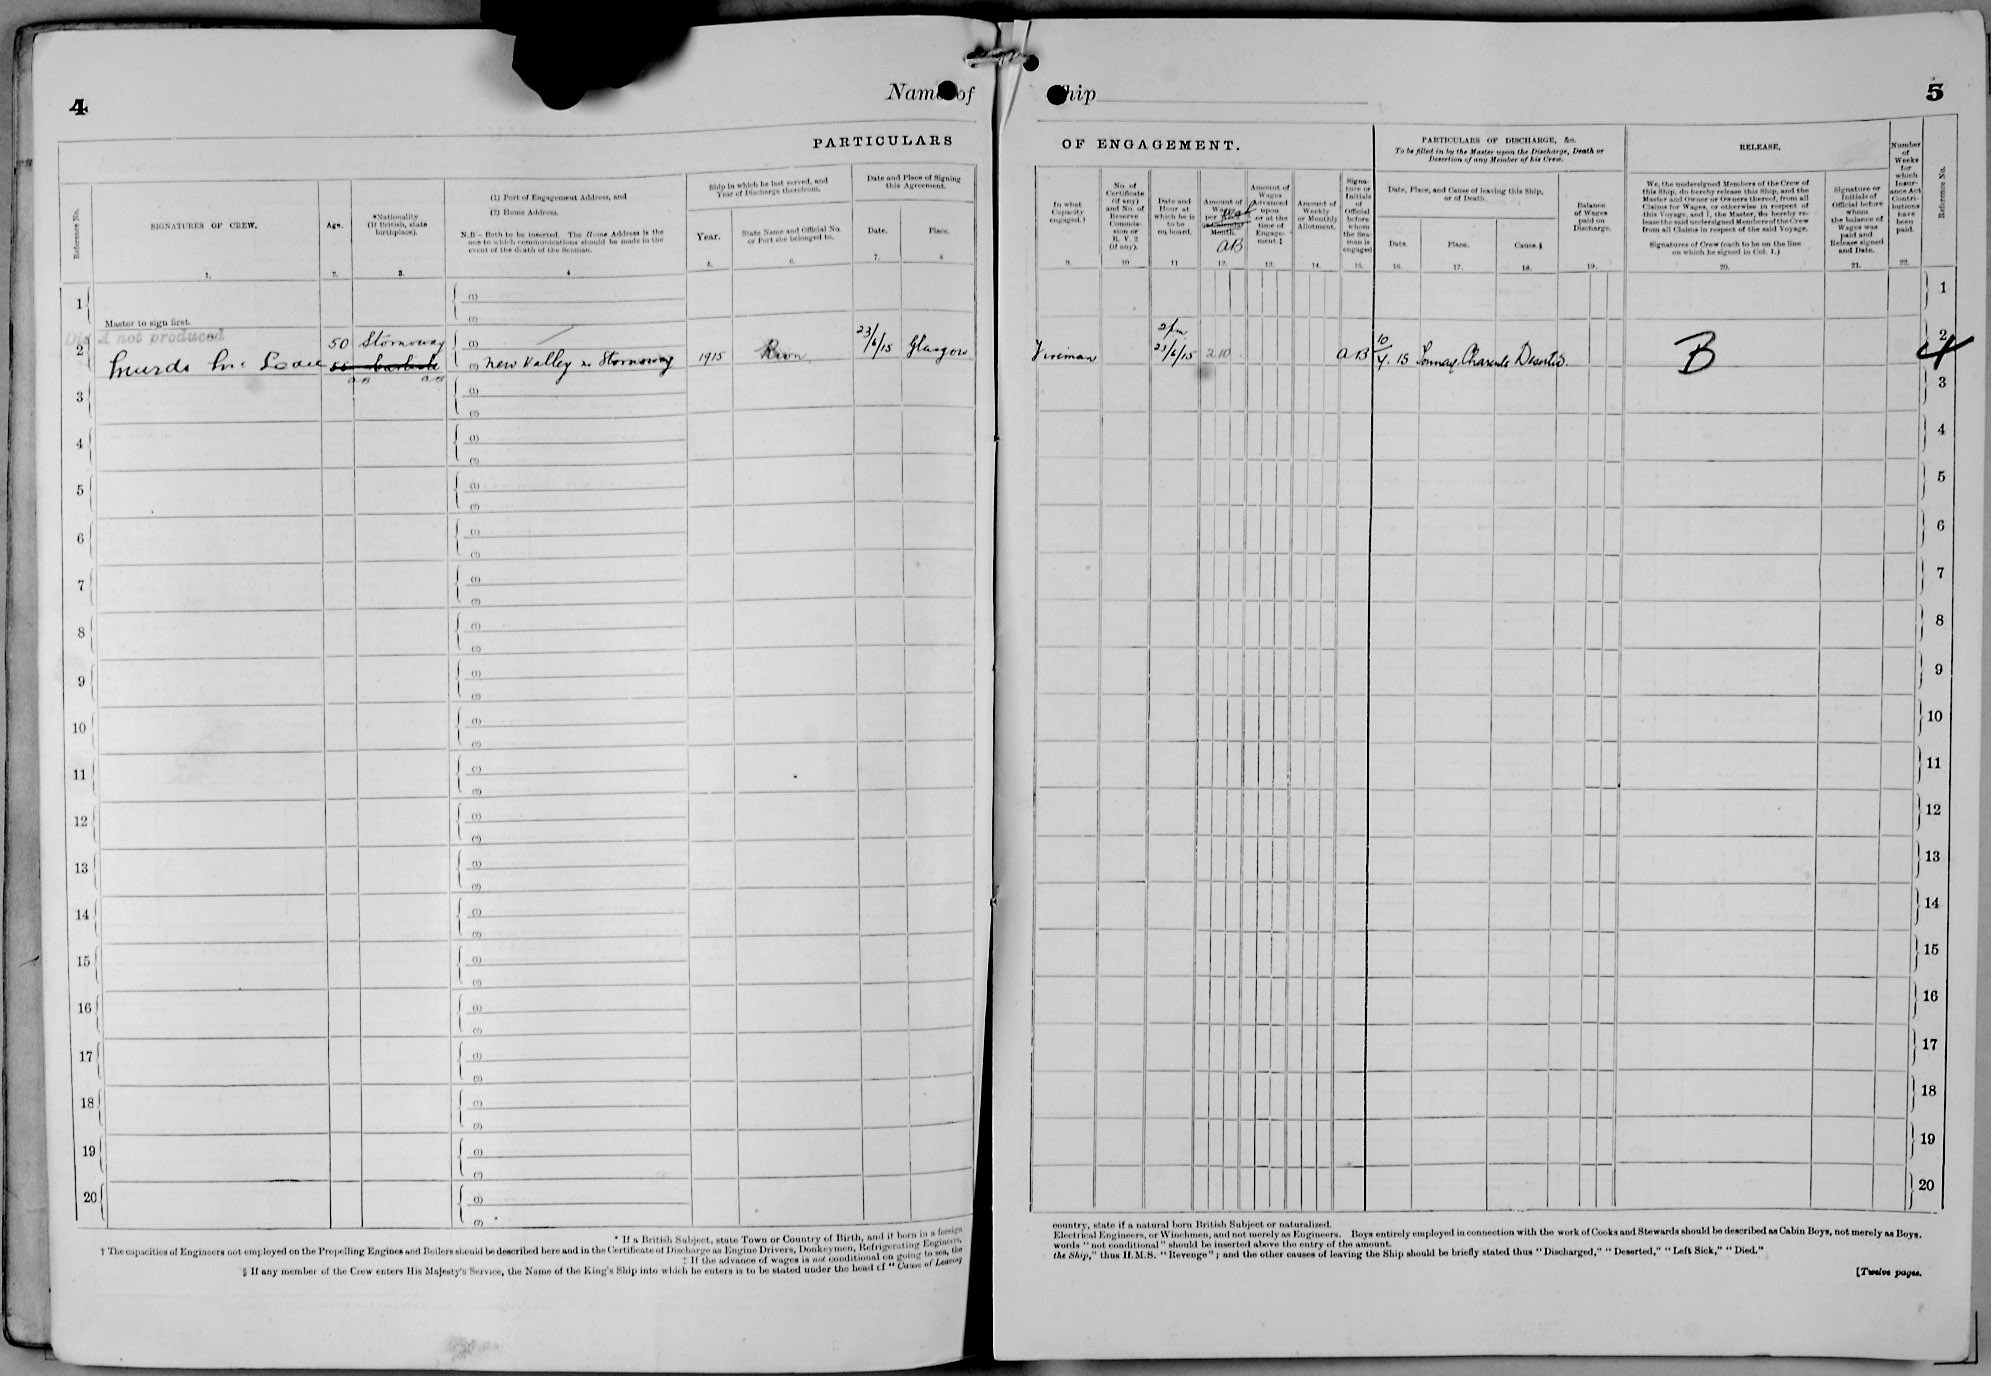 4
Name of Ship
5
PARTICULARS OF ENGAGEMENT.
PARTICULARS OF DISCHARGE, &c.
To be filled in by the Master upon the Discharge, Death or
Desertion of any Member of his Crew.
RELEASE.
Number
of
Weeks
for
which
Insur-
ance Act
Contri-
butions
have
been
paid.
22.
Reference No.
Reference No.
SIGNATURES OF CREW.
1.
Age.
2.
*Nationality
(If British, state
birthplace).
3.
(1) Port of Engagement Address, and
(2) Home Address.
N.B.- Both to be inserted. The Home Address is the
one to which communications should be made in the
event of the death of the Seaman.
4
Ship in which he last served, and
Year of Discharge therefrom.
Year.
5.
State Name and Official No.
or Port she belonged to.
6.
Date and Place of Signing
this Agreement.
Date.
7.
Place.
8
In what
Capacity
engaged.†
9.
No. of
Certificate
(if any)
and No. of
Reserve
Commis-
sion or
R. V. 2
(if any).
10
Date and
Hour at
which he is
to be
on board.
11
Amount of
per Week
or Calendar
Month.
AB
12.
Amount of
Wages
Advanced
upon
or at the
time of
Engage-
ment.‡
13.
Amount of
Weekly
or Monthly
Allotment.
14.
Signa-
ture or
Initials
of
Official
before
whom
the Sea-
man is
engaged
15.
Date, Place, and Cause of leaving this Ship,
or of Death.
Date.
16.
Place.
17.
Cause.§
18.
Balance
of Wages
paid on
Discharge.
19.
We, the undersigned Members of the Crew of
this Ship, do hereby release this Ship, and the
Master and Owner or Owners thereof, from all
Claims for Wages, or otherwise in respect of
this Voyage, and I, the Master, do hereby re-
lease the said undersigned Members of the Crew
from all Claims in respect of the said Voyage.
Signatures of Crew (each to be on the line
on which he signed in Col. 1.)
20.
Signature or
Initials of
Official before
whom
the balance of
Wages was
paid and
Release signed
and Date.
21.
1 Master to sign first. (1) (2) 1
Dis A not produced
2 Murdo Mc Lean 50 Stornoway (1) (2) New Valley nr Stornoway 1915 23/6/15 Glasgow Fireman 2 pm 23/6/15 2 10 AB 10/7.15 Tonnay Charente Deserted. B 2
AB AB
3 (1) (2) 3
4 (1) (2) 4
5 (1) (2) 5
6 (1) (2) 6
7 (1) (2) 7
8 (1) (2) 8
9 (1) (2) 9
10 (1) (2) 10
11 (1) (2) 11
12 (1) (2) 12
13 (1) (2) 13
14 (1) (2) 14
15 (1) (2) 15
16 (1) (2) 16
17 (1) (2) 17
18 (1) (2) 18
19 (1) (2) 19
20 (1) (2) 20
* If a British Subject, state Town or Country of Birth, and if born in a foreign
† The capacities of Engineers not employed on the Propelling Engines and Boilers should be described here and in the Certificate of Discharge as Engine Drivers, Donkeymen, Refrigerating Engineers,
‡ If the advance of wages is not conditional on going to sea, the
§ If any member of the Crew enters His Majesty's Service, the Name of the King's Ship into which he enters is to be stated under the head of "Cause of Leaving
country, state if a natural born British Subject or naturalized.
Electrical Engineers, or Winchmen, and not merely as Engineers. Boys entirely employed in connection with the work of Cooks and Stewards should be described as Cabin Boys, not merely as Boys.
words "not conditional" should be inserted above the entry of the amount.
the Ship," thus H.M.S. "Revenge"; and the other causes of leaving the Ship should be briefly stated thus "Discharged," "Deserted," "Left Sick," "Died."
[Twelve pages.